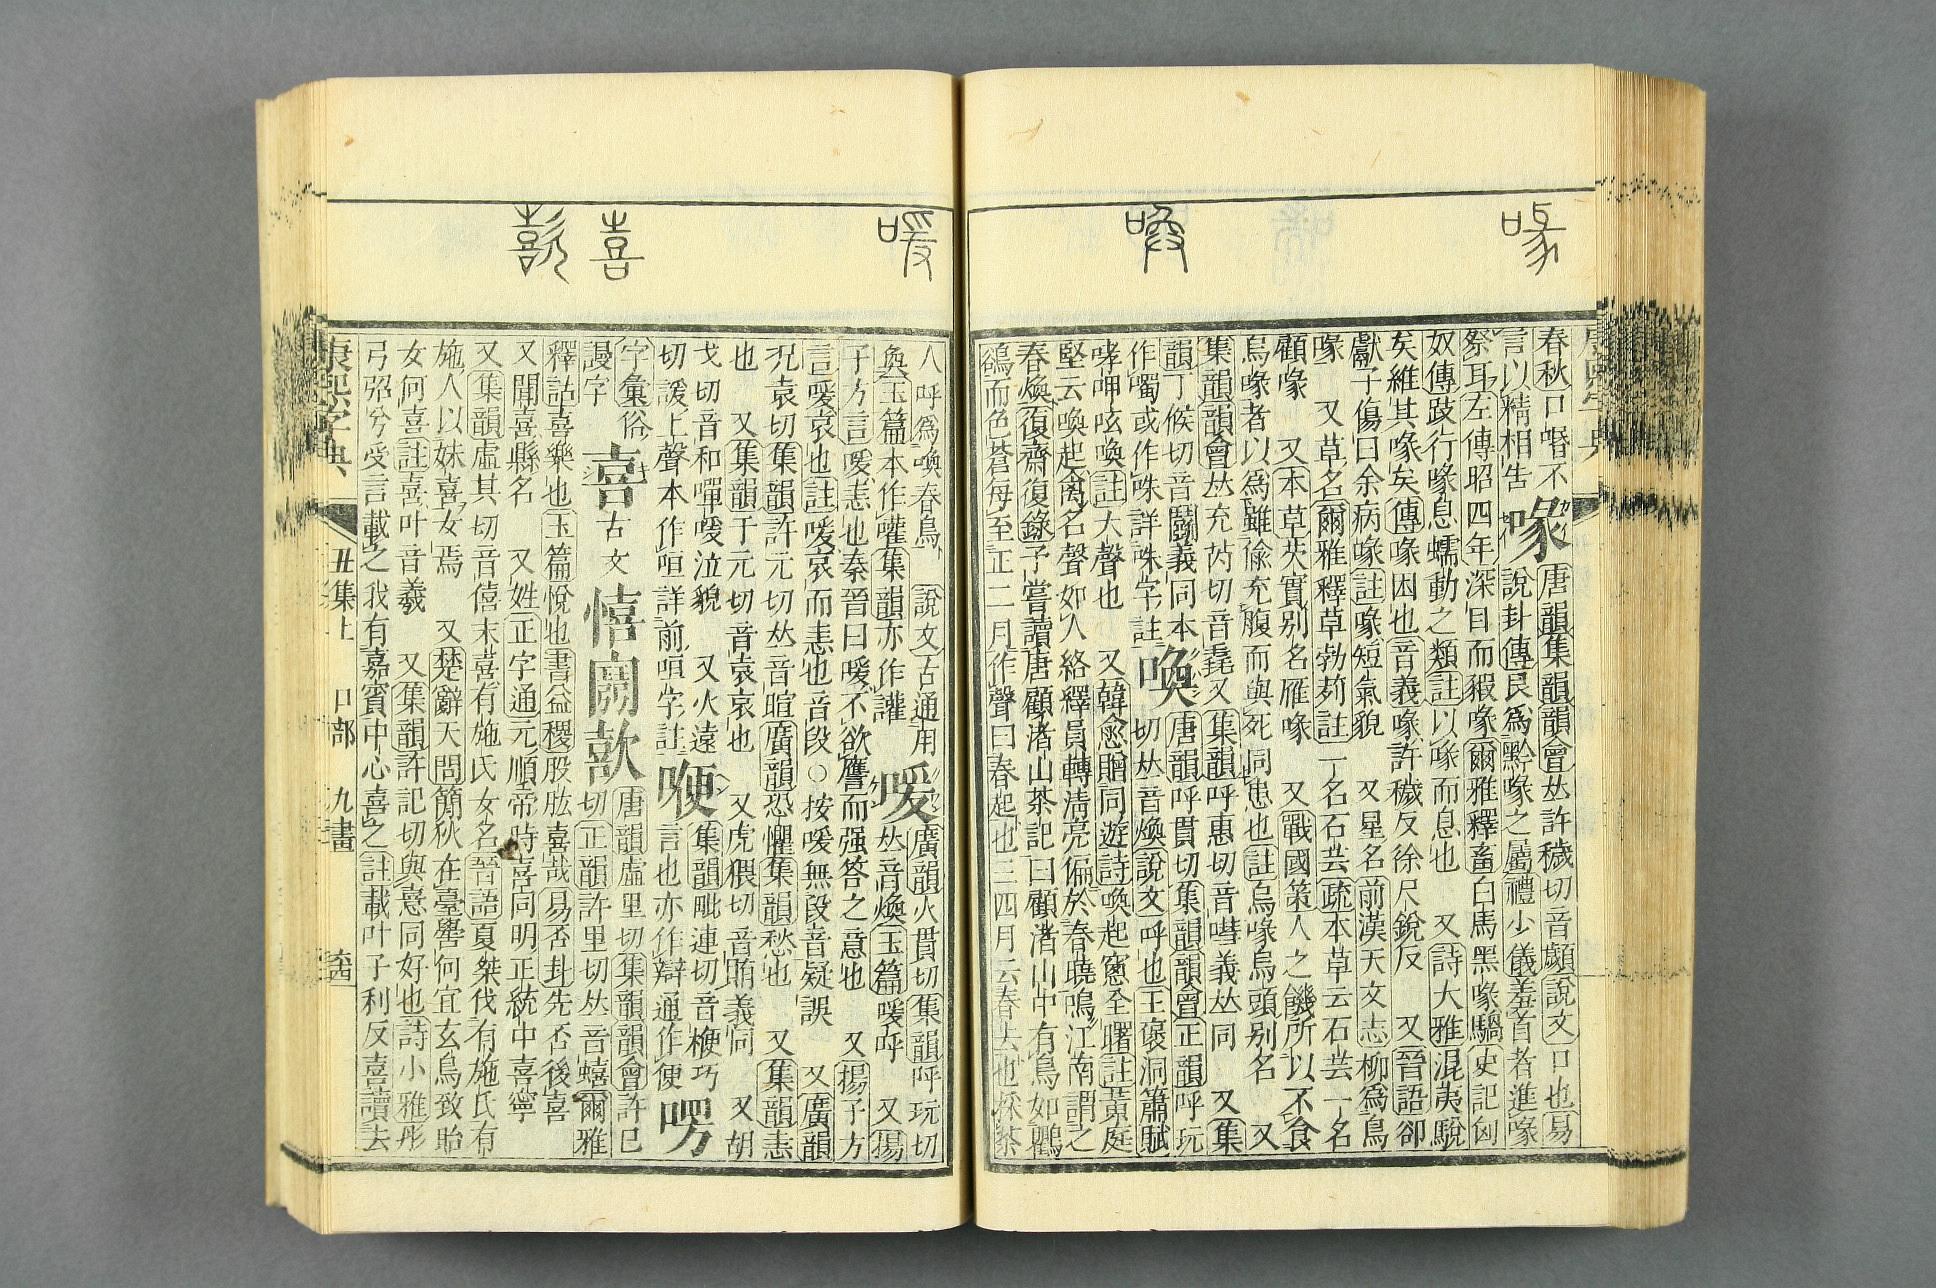 喙
喚
喛
喜
歖
春秋口惛不喙唐韻集韻韻會𠀤許穢切音顪說文口也易
言以精相告說卦傳艮爲黔喙之屬禮少儀羞首者進喙
祭耳左傳昭四年深目而豭喙爾雅釋畜白馬黑喙騧史記匈
奴傳跂行喙息蠕動之類註以喙而息也 又詩大雅混夷駾
矣維其喙矣傳喙困也音義喙許穢反徐尺銳反 又晉語卻
獻子傷曰余病喙註喙短氣貌 又星名前漢天文志柳爲鳥
喙 又草名爾雅釋草茢註一名石芸疏本草云石芸一名
顧喙 又本草芡實別名雁喙 又戰國策人之饑所以不食
烏喙者以爲雖偷充腹而與死同患也註烏喙烏頭別名 又
集韻韻會𠀤充芮切音毳又集韻呼惠切音嘒義𠀤同 又集
韻丁候切音鬭義同本喚唐韻呼貫切集韻韻會正韻呼玩
作噣或作咮詳咮字註 切𠀤音煥說文呼也王褒洞簫賦
哮呷呟喚註大聲也 又韓愈贈同遊詩喚起窻全曙註黃庭
堅云喚起禽名聲如人絡釋員轉清亮偏於春曉鳴江南謂之
春煥復齋復錄予嘗讀唐顧渚山茶記曰顧渚山中有鳥如鸜
鵒而色蒼每至正二月作聲曰春起也三四月云春去也採茶
人呼爲喚春鳥 說文古通用喛廣韻火貫切集韻呼玩切
奐玉篇本作嚾集韻亦作讙 𠀤音煥玉篇喛呼 又揚
子方言喛恚也秦晉曰喛不欲譍而强答之意也 又揚子方
言喛哀也註喛哀而恚也音段○按喛無段音疑誤 又廣韻
況袁切集韻許元切𠀤音暄廣韻恐懼集韻愁也 又集韻恚
也 又集韻于元切音袁哀也 又虎猥切音賄義同 又胡
戈切音和嘽喛泣貌 又火遠 集韻毗連切音楩巧
切諼上聲本作咺詳前咺字註 言也亦作辯通作便
字彙俗喜古文憘歖唐韻虛里切集韻韻會許已
謾字 切正韻許里切𠀤音蟢爾雅
釋詁喜樂也玉篇悅也書益稷股肱喜哉易否卦先否後喜
又聞喜縣名 又姓正字通元順帝時喜同明正統中喜寧
又集韻虛其切音僖末喜有施氏女名晉語夏桀伐有施氏有
施人以妹喜女焉 又楚辭天問簡狄在臺嚳何宜玄鳥致貽
女何喜註喜叶音羲 又集韻許記切與憙同好也詩小雅彤
弓弨兮受言載之我有嘉賓中心喜之註載叶子利反喜讀去
康熙字典 丑集上 口部 九畫